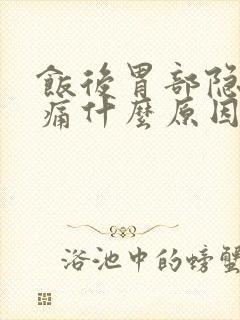 飯後胃部隐
痛什麼原因
浴池中的螃蟹